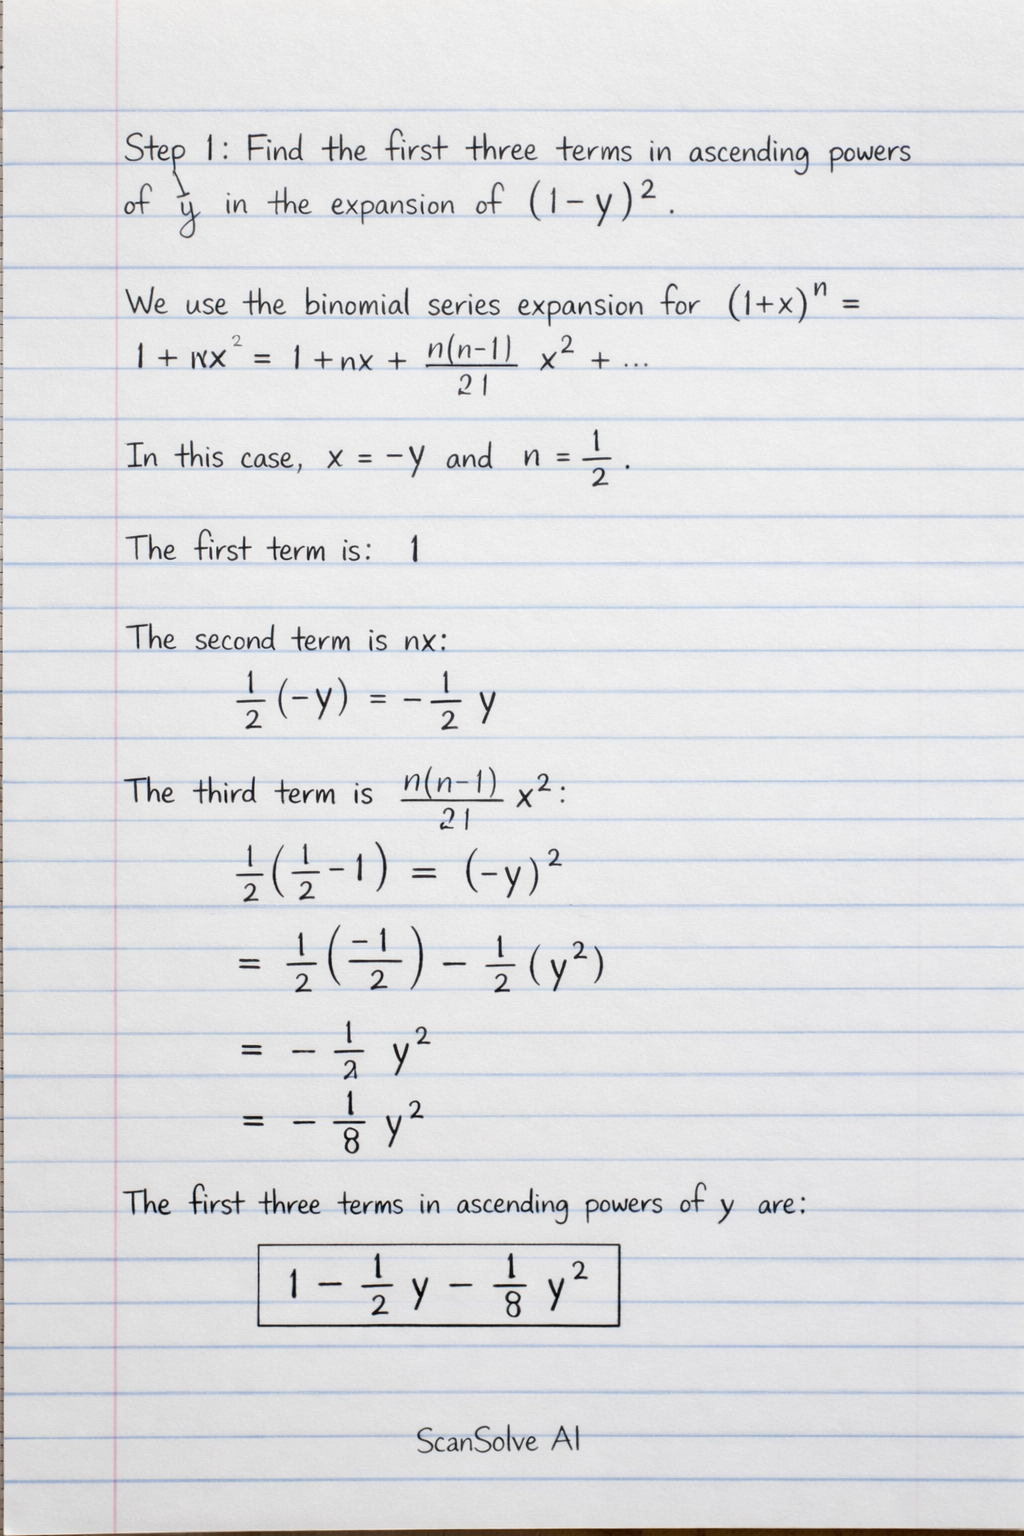 Step 1: Find the first three terms in ascending powers
of y in the expansion of (1-y)².
We use the binomial series expansion for (1+x)ⁿ =
1 + nx² = 1 + nx + n(n-1)/21 x² + ...
In this case, x = -y and n = 1/2.
The first term is: 1
The second term is nx:
1/2 (-y) = - 1/2 y
The third term is n(n-1)/21 x²:
1/2 (1/2 - 1) = (-y)²
= 1/2 (-1/2) - 1/2 (y²)
= - 1/2 y²
= - 1/8 y²
The first three terms in ascending powers of y are:
1 - 1/2 y - 1/8 y²
ScanSolve AI